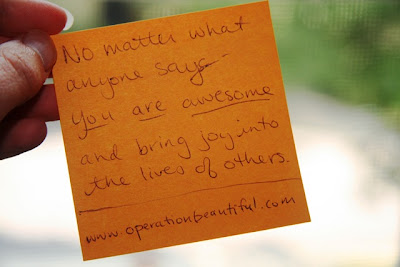 No matter what
anyone says-
you are awesome
and bring joy into
the lives of others.
www.operationbeautiful.com